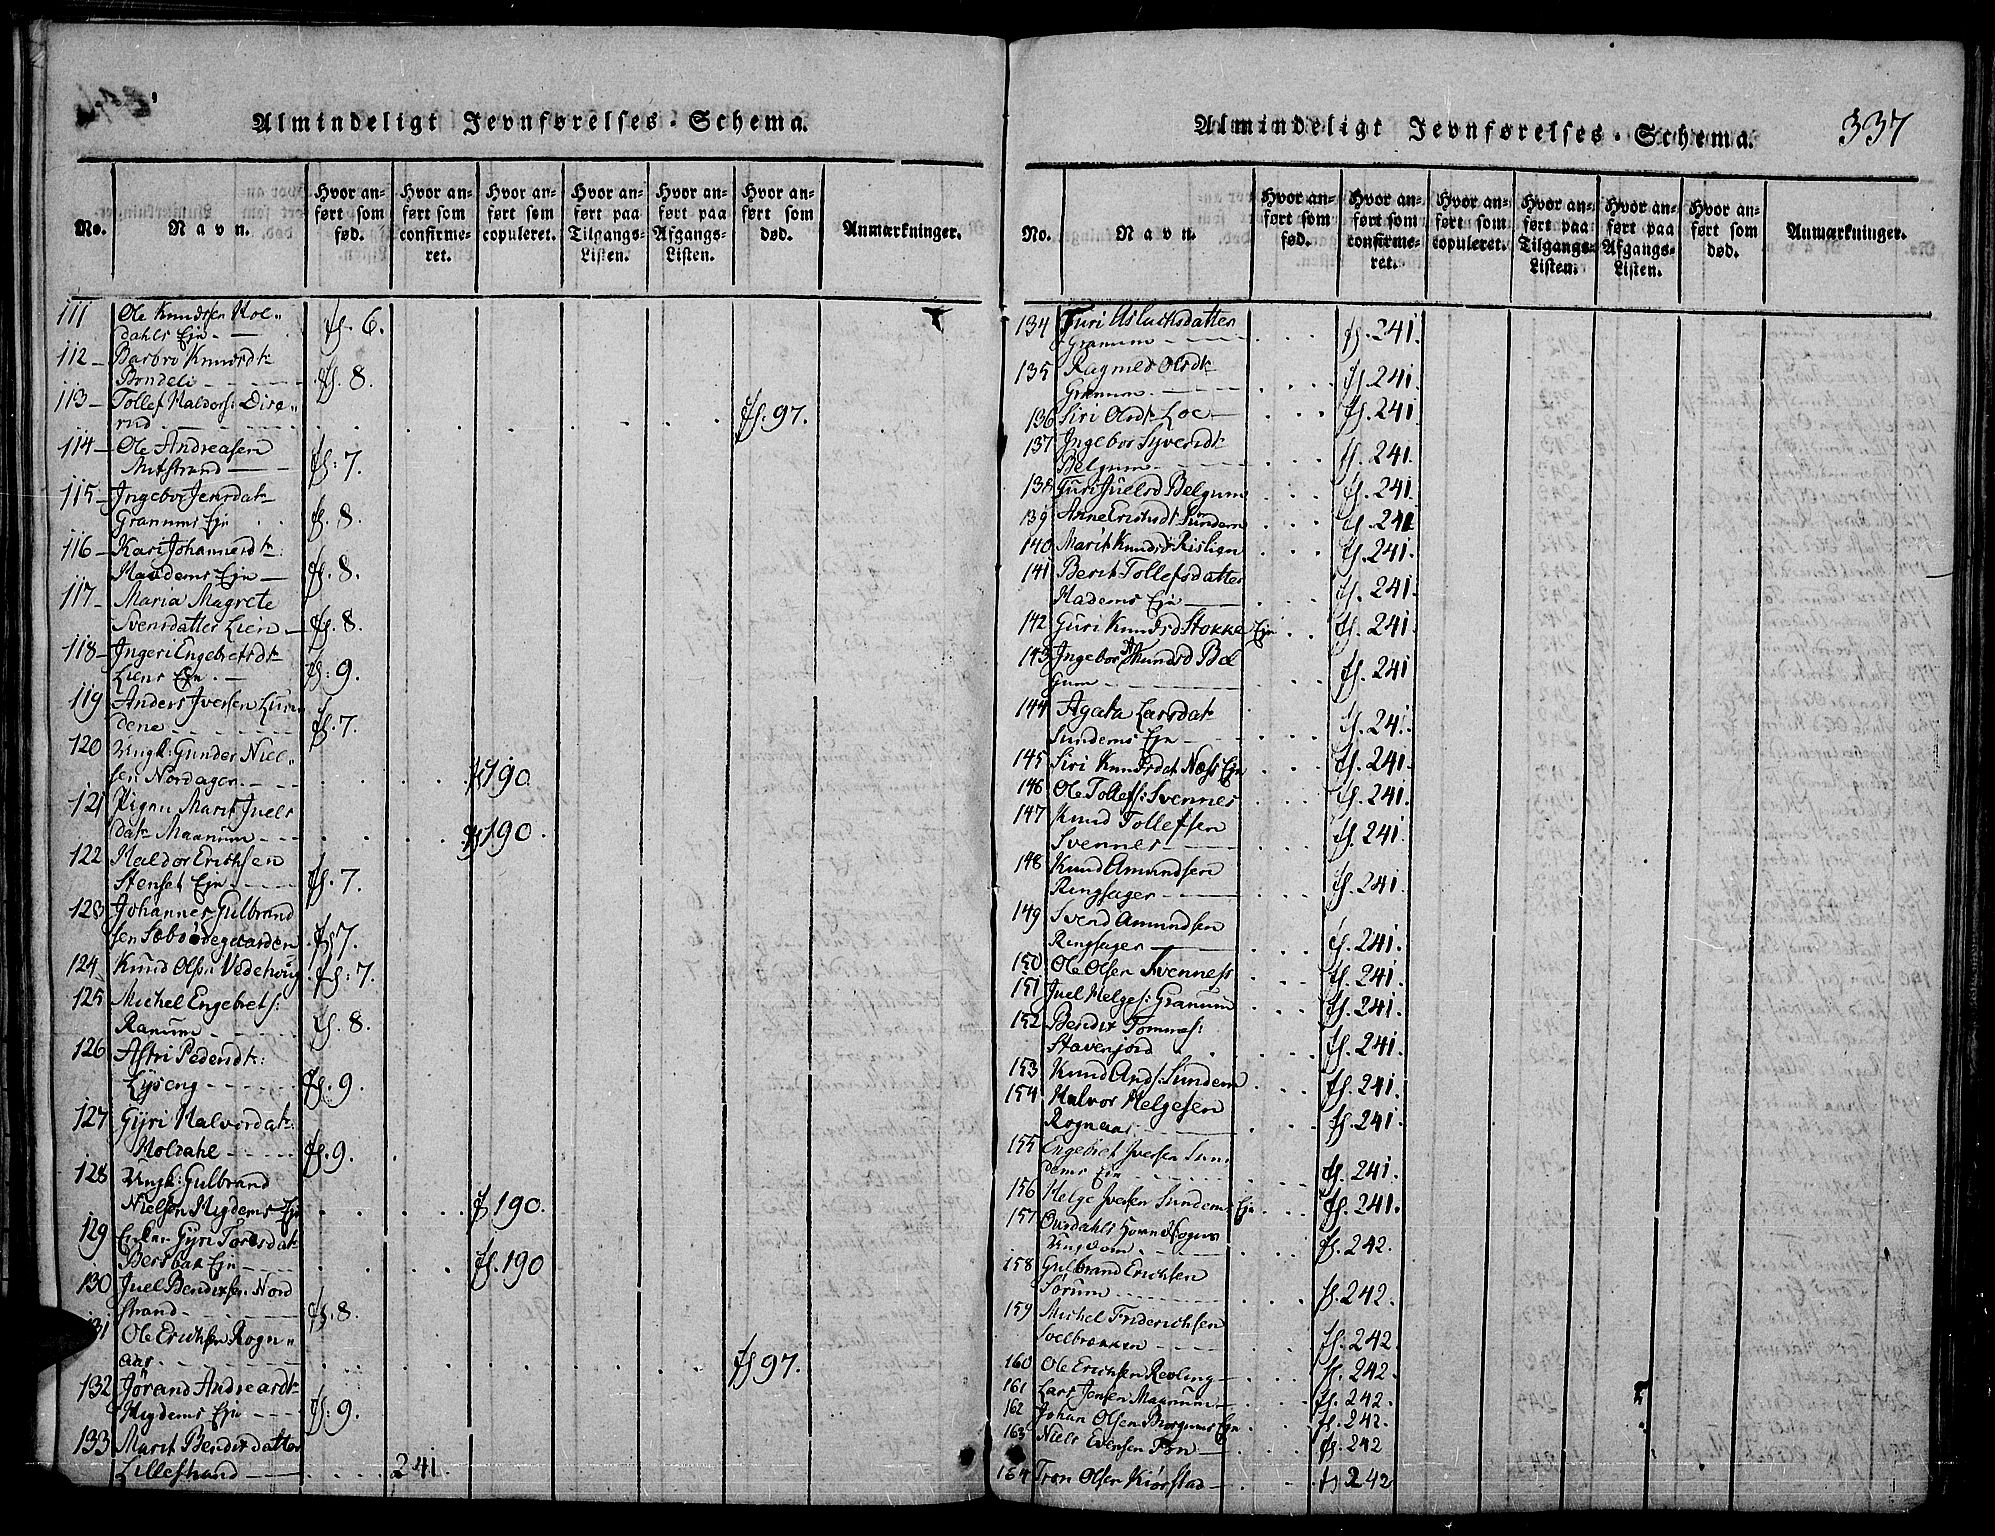 Almindeligt Jevnførelses-Schema.
No.
Navn.
Hvor an-
ført som
fød.
Hvor an-
ført som
confirme-
ret.
Hvor an-
ført som
copuleret.
Hvor an-
ført paa
Tilgangs-
Listen.
Hvor an-
ført paa
Afgangs-
Listen.
Hvor an-
ført som
død.
Anmærkninger.
111 Ole Knudsen Hol-
dahls Ejn. fs. 6.
112 Barbro Knudsdt
Bondeli fs. 8.
113 Tollef Haldors: Dise-
rud fs. 97.
114 Ole Andreasen
Mitstrand fs. 7.
115 Ingebor Jensdat
Granums Ejn fs. 8.
116 Kari Johannesdt:
Haadems Ejn fs. 8.
117 Maria Magrete
Svensdatter Lien fs. 8.
118 Ingeri Engebretsdt
Liens Ejn. fs: 9.
119 Anders Iversen Lun-
dene fs. 7.
120 Ungk: Gunder Niel-
sen Nordager. fs 190.
121 Pigen Marit Juels
dat Maanum fs 190.
122 Haldor Erichsen
Stenset Ejn fs. 7.
123 Johannes Gulbrand
sen Sæbsødegaarden fs 7.
124 Knud Olsen Vedehoug fs: 7.
125 Michel Engebrets:
Ranum fs. 8.
126 Astri Pedersdt:
Lÿseng fs. 9.
127 Gÿri Halvordat:
Holdahl fs. 9.
128 Ungk: Gulbrand
Nielsen Hugdems Ejn fs 190.
129 Enken Gÿri Toresdat
Bersbak Ejn fs. 190
130 Juel Bendixsen Nord
strand fs. 8.
131 Ole Erichsen Rogn-
aas fs 97.
132 Jørand Andreasdt
Hugdems Ejn fs: 9.
133 Marit Bendixdatter
Lillestrand 241.
Almindeligt Jevnførelses-Schema.
337
No.
Navn.
Hvor an-
ført som
fød.
Hvor an-
ført som
confirme-
ret.
Hvor an-
ført som
copuleret.
Hvor an-
ført paa
Tilgangs-
Listen.
Hvor an-
ført paa
Afgangs-
Listen.
Hvor an-
ført som
død.
Anmærkninger.
134 Turi Aslachsdatter
Granum fs. 241.
135 Ragnild Olsdt
Granum. fs. 241.
136 Siri Olsdt Loe fs. 241.
137 Ingebor Syversdt
Belgum fs. 241.
138 Guri Juelsd Belgum fs. 241.
139 Anne Erichsdt Sundem fs. 241
140 Marit Knudsd Rislien fs. 241.
141 Berit Tollefsdatter
Hadems Ejn fs. 241.
142 Guri Knudsd Stokke Ejn fs. 241.
143 Ingebor Amundsd Bel
gum fs. 241
144 Agata Larsdat
Sundems Ejn fs. 241.
145 Siri Knudsdat Næss Ejn fs. 241.
146 Ole Tollefs: Svennes fs. 241.
147 Knud Tollefsen
Svennes fs. 241.
148 Knud Amundsen
Ringsager fs. 241.
149 Svend Amundsen
Ringsager fs. 241.
150 Ole Olsen Svennes fs. 241.
151 Juel Helges: Granum fs. 241.
152 Bendix Tommes:
Stavenjord fs. 241.
153 Knud Ands: Sundem fs. 241.
154 Halvor Helgesen
Rognaas fs. 241.
155 Engebret Iversen Sun-
dems Ejn fs. 241.
156 Helge Iversen Sundems Ejn fs. 241.
157 Ourdahls Hoved Sogns
Ungdom. fs. 242.
158 Gulbrand Erichsen
Sørum fs. 242.
159 Michel Friderichsen
Soelbrækken fs. 242.
160 Ole Erichsen Revling fs. 242.
161 Lars Jensen Maanum fs. 242.
162 Johan Olsen Ejn fs. 242.
163 Niels Evensen Ton fs. 242
164 Tron Olsen Kiørstad fs 242